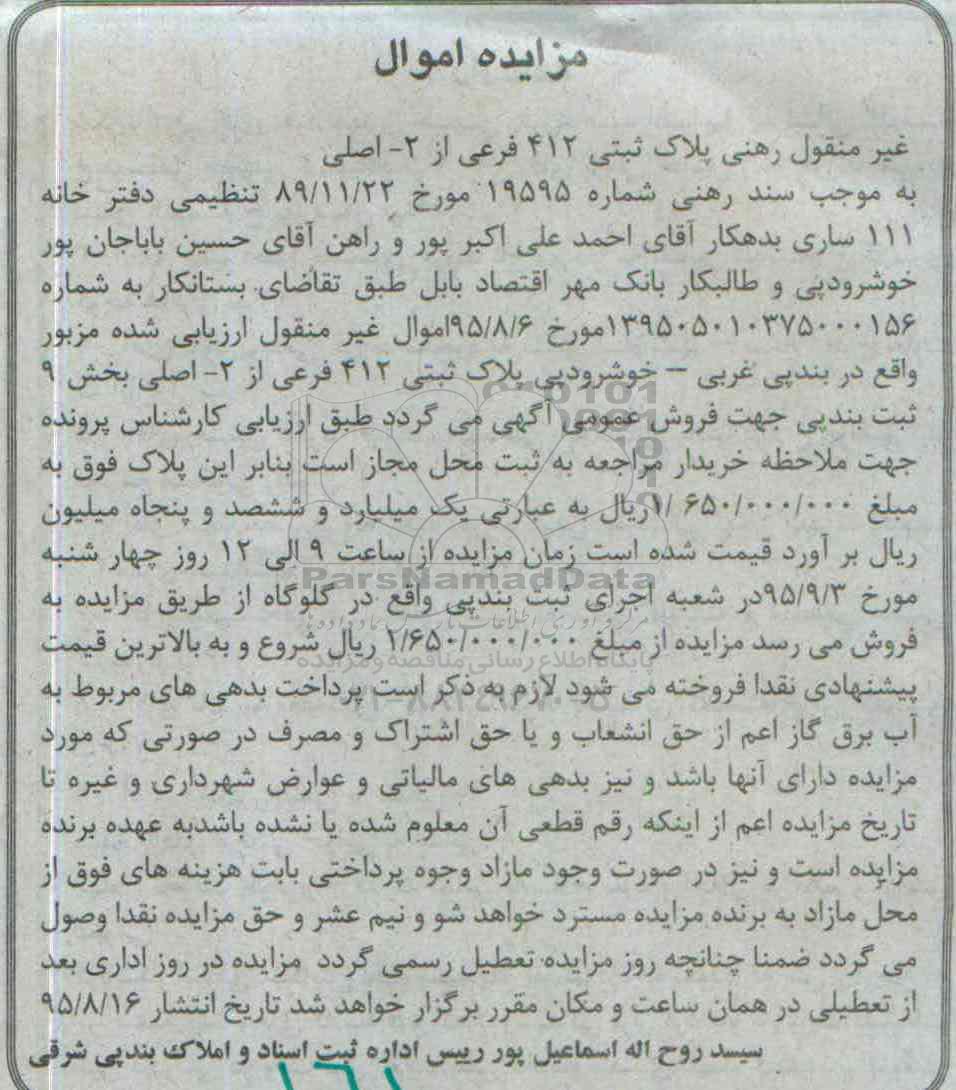 مزایده اموال
غیر منقول رهنی پلاک ثبتی ۴۱۲ فرعی از ۲- اصلی
به موجب سند رهنی شماره ۱۹۵۹۵ مورخ ۸۹/۱۱/۲۲ تنظیمی دفتر خانه
۱۱۱ ساری بدهکار آقای احمد علی اکبر پور و راهن آقای حسین باباجان پور
خوشرودپی و طالبکار بانک مهر اقتصاد بابل طبق تقاضای بستانکار به شماره
۱۳۹۵۰۵۰۱۰۳۷۵۰۰۰۱۵۶مورخ ۹۵/۸/۶اموال غیر منقول ارزیابی شده مزبور
واقع در بندپی غربی – خوشرودپی پلاک ثبتی ۴۱۲ فرعی از ۲- اصلی بخش ۹
ثبت بندپی جهت فروش عمومی آگهی می گردد طبق ارزیابی کارشناس پرونده
جهت ملاحظه خریدار مراجعه به ثبت محل مجاز است بنابر این پلاک فوق به
مبلغ ۱/ ۶۵۰/۰۰۰/۰۰۰ریال به عبارتی یک میلیارد و ششصد و پنجاه میلیون
ریال بر آورد قیمت شده است زمان مزایده از ساعت ۹ الی ۱۲ روز چهار شنبه
ParsNamadData
مورخ ۹۵/۹/۳در شعبه اجرای ثبت بندپی واقع در گلوگاه از طریق مزایده به
فروش می رسد مزایده از مبلغ ۱/۶۵۰/۰۰۰/۰۰۰ ریال شروع و به بالاترین قیمت
پایگاه اطلاع رسانی مناقصه و مزایده
پیشنهادی نقدا فروخته می شود لازم به ذکر است پرداخت بدهی های مربوط به
آب برق گاز اعم از حق انشعاب و یا حق اشتراک و مصرف در صورتی که مورد
مزایده دارای آنها باشد و نیز بدهی های مالیاتی و عوارض شهرداری و غیره تا
تاریخ مزایده اعم از اینکه رقم قطعی آن معلوم شده یا نشده باشدبه عهده برنده
مزایده است و نیز در صورت وجود مازاد وجوه پرداختی بابت هزینه های فوق از
محل مازاد به برنده مزایده مسترد خواهد شو و نیم عشر و حق مزایده نقدا وصول
می گردد ضمنا چنانچه روز مزایده تعطیل رسمی گردد مزایده در روز اداری بعد
از تعطیلی در همان ساعت و مکان مقرر برگزار خواهد شد تاریخ انتشار ۹۵/۸/۱۶
سیسد روح اله اسماعیل پور رییس اداره ثبت اسناد و املاک بندپی شرقی
۱۶۱